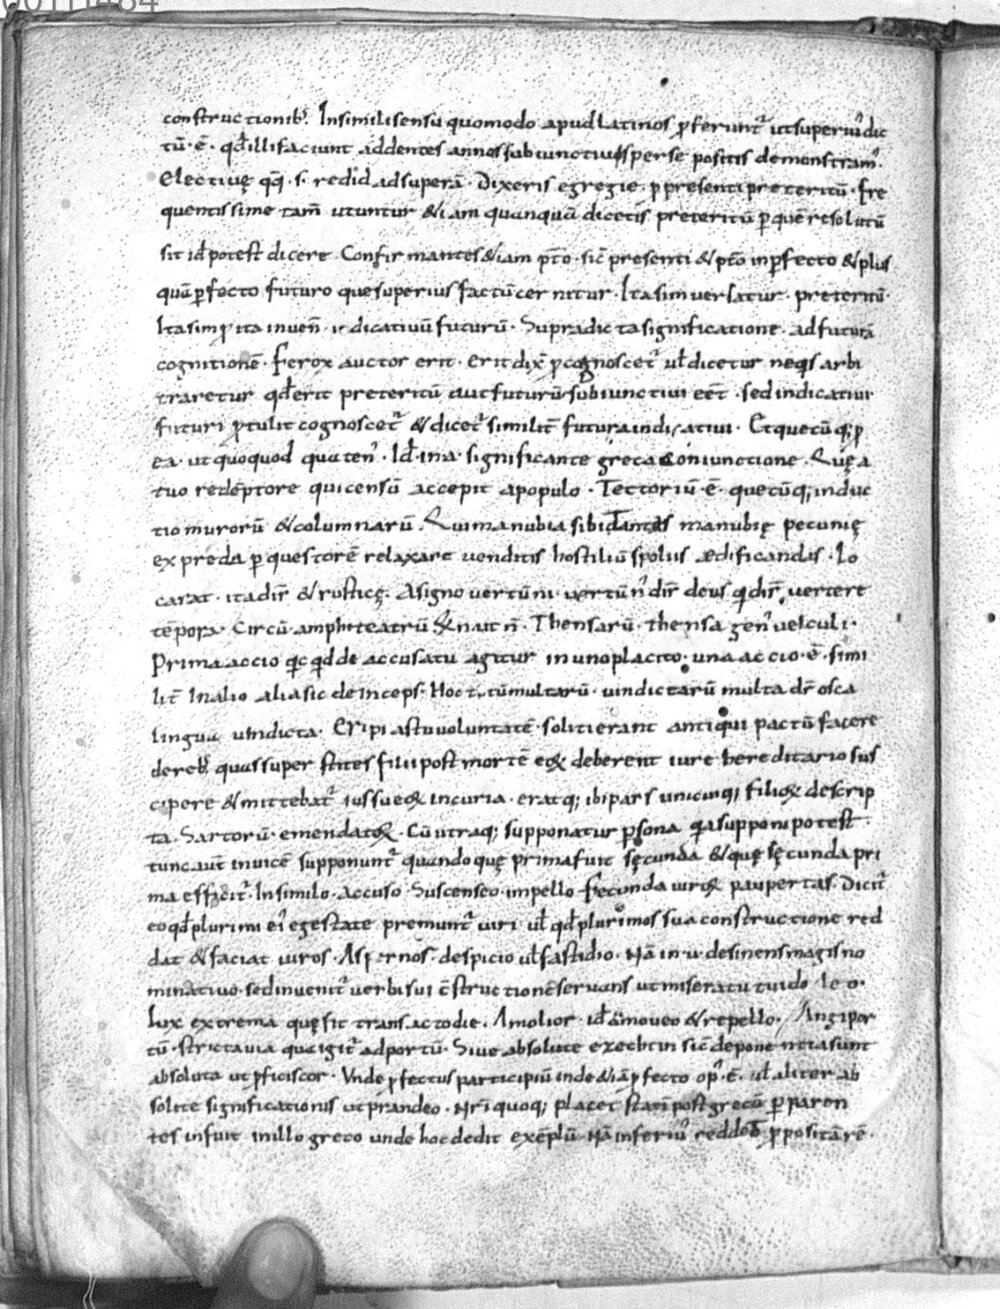 constructionib; Insimili sensu quomodo apud Latinos ꝓferunt᷑ ut superiu᷑ dic
tū · ē · qđ illi faciunt addentes annos subiunctiuis per se positis demonstram᷑.
Electiuę qđ · s · reddid ad superā · Dixeris egregie · ꝓ presenti preteritū · fre
quentissime tam̄ utuntur & iam quanquā dicetis preteritū ꝑ quē resolutū
sit id potest dicere · Confirmantes & iam pto · sic̄ presenti & pto inperfecto & plus
quā ꝑfecto futuro que superius factū cernitur · Ita sim uersatur · preteritū ·
Ita sim ꝓ ita inuen̄ · indicatiuū futurū · Supradicta significatione · ad futurā
cognitionē · Ferox auctor erit · erit dix̄ ꝓ cognoscet᷑ uł dicetur neqs arbi
traretur qđ erit preteritū aut futurū subiunctiui eēt · sed indicatiui
futuri ꝓtulit cognoscet᷑ & dicet᷑ similit̄ futura indicatiui · Et quecūq; ꝓ
ea · ut quoquod quaten᷑ · Id · ina · significante greca coniunctione · Quę a
tuo redēptore qui censū accepit apopulo · Tectoriū · ē · quecūq; induc
tio murorū & columnarū Qui manubia sibi tantas manubię pecunię
ex preda ꝑ questorē relaxare uenditis hostiliū spoliis ædificandis · Lo
carat · ita dir̄ & rusticę · A signo uertūni · uertūn᷑ dir̄ deus q dir̄ uertere
tēpora · Circū amphiteatrū significat n̄ · Thensarū · thensa gen᷑ uehiculi ·
Prima accio qc qđ de accusatu agitur in uno placito · una accio · ē · simi
lit̄ In alio alia sic deinceps · Hoc tū multarū · uindictarū multa dr̄ osca
lingua uindicta · Eripi astu uoluntatē · soliti erant antiqui pactū facere
dereb; quas superstites filii post mortē eoꝝ deberent iure hereditario sus
cipere & mittebat᷑ iussu eoꝝ in curia · eratq; ibi pars unicuiq; filioꝝ descrip
ta · Sartorū · emendatoꝝ · Cū utraq; supponatur ꝑsona q̄a supponi potest ·
tunc aut̄ inuicē supponunt᷑ quando quę prima fuit sęcunda & quę sęcunda pri
ma efficit᷑ · Insimilo · Accuso · Suscenseo · impello · fecunda uiroꝝ paupertas · Dicit᷑
eo qđ plurimi ei᷑ egestate premunt᷑ uiri · uł qđ plurimos sua constructione red
dat & faciat uiros · Aspernos · despicio uł fastidio · Nā in u desinens magis no
minatiuo · sed inuenit᷑ uerbi sui c̄structionē seruans ut miseratu tuido leo ·
Lux extrema quę sit transacto die · Amolior · id amoueo & repello · Angipor
tū · stricta uia qua igit᷑ ad portū · Siue absolute exechtin sic̄ deponentia sunt
absoluta ut ꝓficiscor · Vnde ꝓfectus participiū inde & iā ꝓfecto op᷑ · ē · uł aliter ab
solute significationis ut prandeo · Nr̄i quoq; placet statī post grecū ꝑ paren
tes infuit in illo greco unde hoc dedit exēplū · Nā inferiu᷑ reddet ꝓpositā rē ·